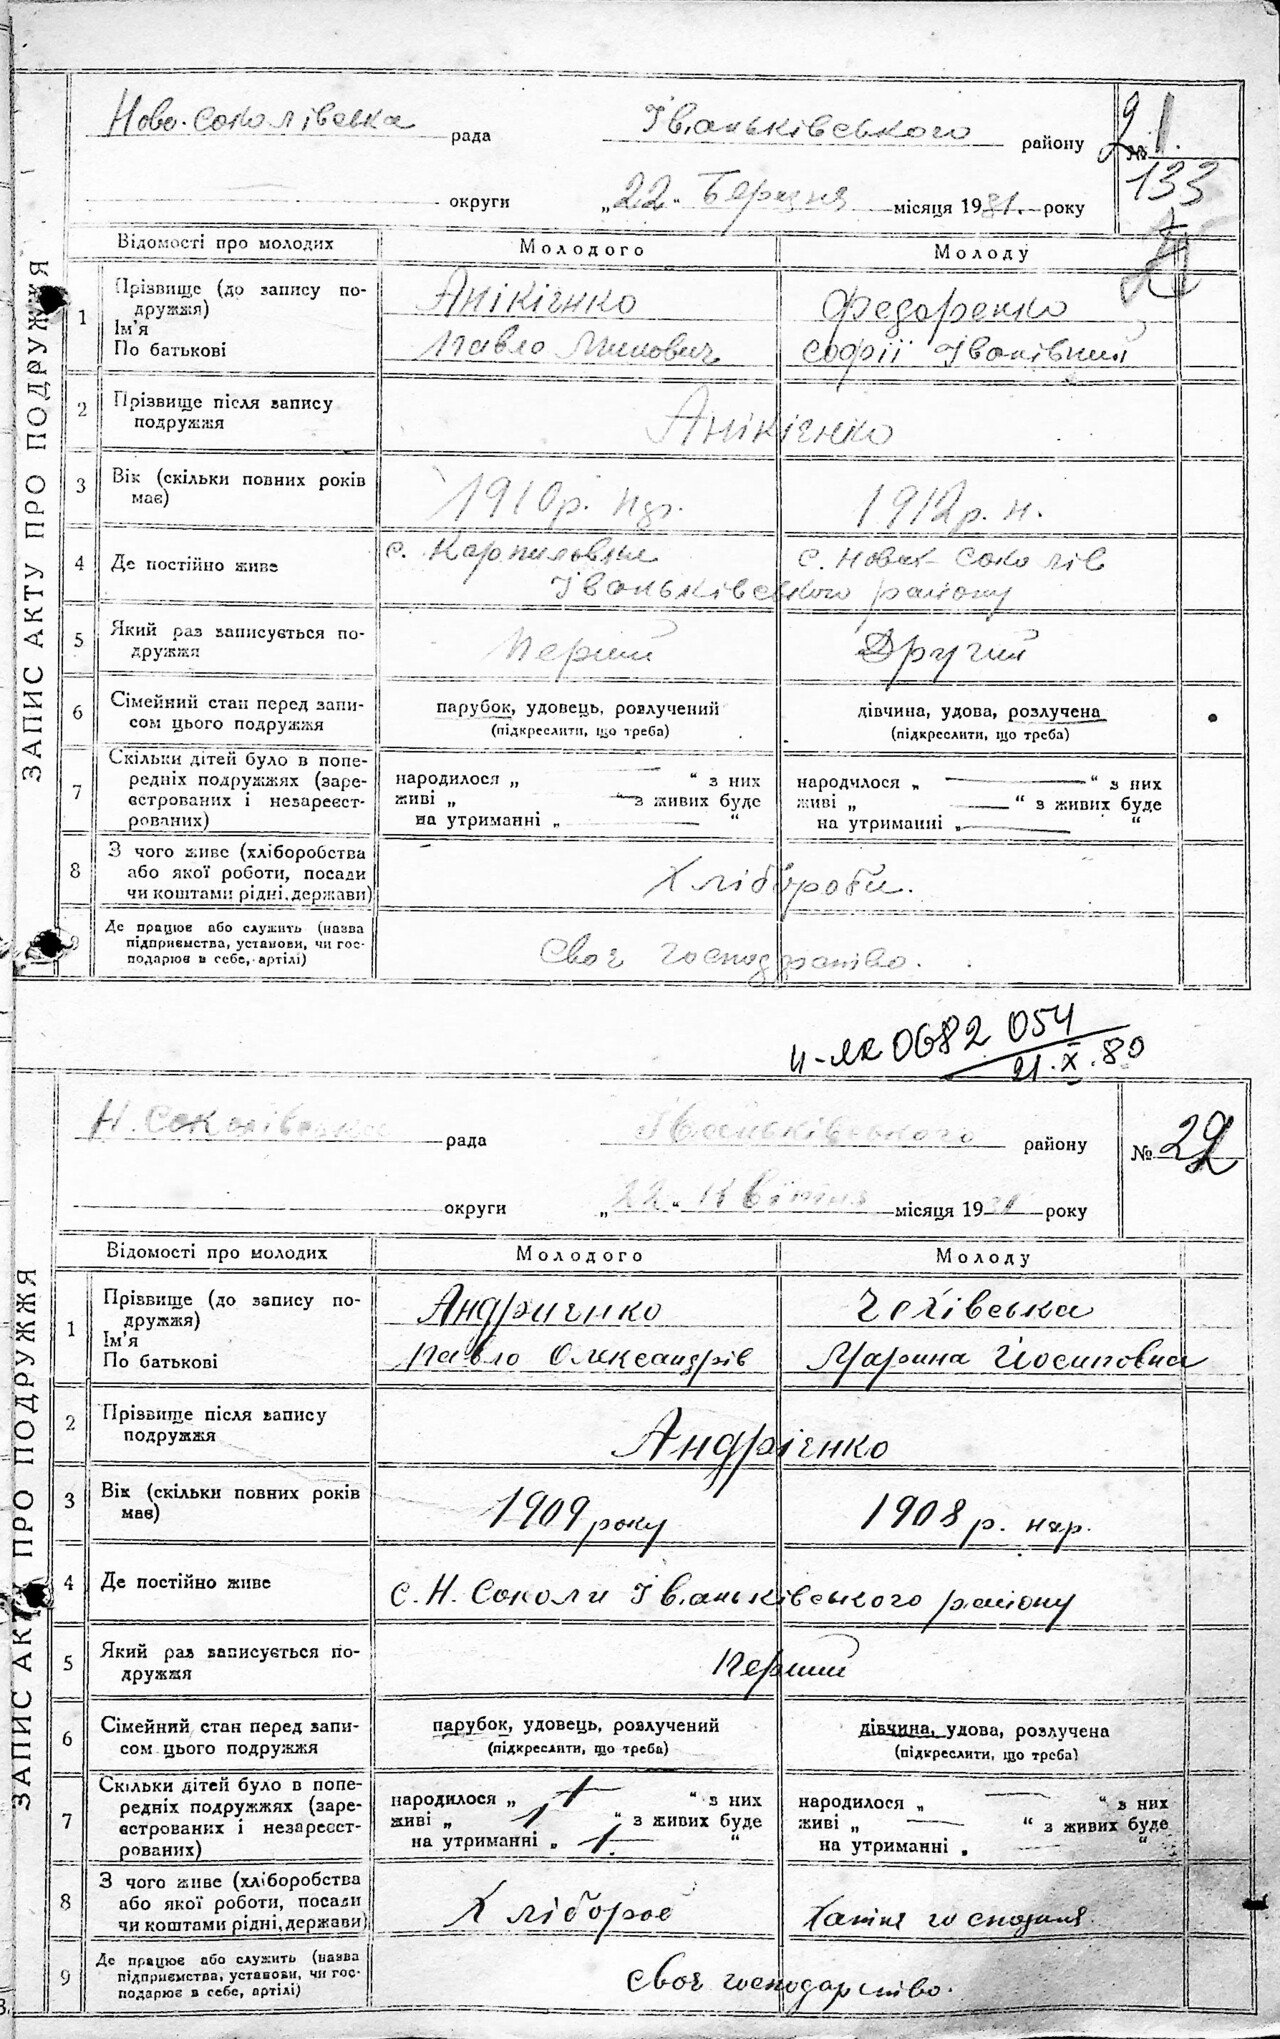 ЗАПИС АКТУ ПРО ПОДРУЖЖЯ
Ново-Соколівська рада Іваньківського району № 21.
133
округи „22“ Березня місяця 1931. року
Відомості про молодих Молодого Молоду
1 Прізвище (до запису подружжя) Анікієнко Федоренко
Ім'я
По батькові Павло Софії Іванівни
2 Прізвище після запису подружжя Анікієнко
3 Вік (скільки повних років має) 1910 р. 1912 р. н.
4 Де постійно живе с. Карпиловки с. Нові-Соколів
Іваньківського району
5 Який раз записується подружжя Перший Другий
6 Сімейний стан перед записом цього подружжя парубок, удовець, розлучений дівчина, удова, розлучена
(підкреслити, що треба) (підкреслити, що треба)
7 Скільки дітей було в попередніх подружжях (зареєстрованих і незареєстрованих) народилося „ — “ з них народилося „ — “ з них
живі „ — “ з живих буде живі „ — “ з живих буде
на утриманні „ — “ на утриманні „ — “
8 З чого живе (хліборобства або якої роботи, посади чи коштами рідні, держави) Хлібороби.
Де працює або служить (назва підприємства, установи, чи господарює в себе, артілі) Своє господарство.
ІІ-ЛК 0682 054
21.X.80
ЗАПИС АКТУ ПРО ПОДРУЖЖЯ
Н. Соколівська рада Іваньківського району № 22
округи „22“ Квітня місяця 1931 року
Відомості про молодих Молодого Молоду
1 Прізвище (до запису подружжя) Андриєнко Чехівська
Ім'я
По батькові Павло Олександрів Марина Йосиповна
2 Прізвище після запису подружжя Андрієнко
3 Вік (скільки повних років має) 1909 року 1908 р. нар.
4 Де постійно живе с. Н. Соколи Іваньківського району
5 Який раз записується подружжя перший
6 Сімейний стан перед записом цього подружжя парубок, удовець, розлучений дівчина, удова, розлучена
(підкреслити, що треба) (підкреслити, що треба)
7 Скільки дітей було в попередніх подружжях (зареєстрованих і незареєстрованих) народилося „ — “ з них народилося „ — “ з них
живі „ — “ з живих буде живі „ — “ з живих буде
на утриманні „ — “ на утриманні „ — “
8 З чого живе (хліборобства або якої роботи, посади чи коштами рідні, держави) Хлібороб Хатня господиня
9 Де працює або служить (назва підприємства, установи, чи господарює в себе, артілі) Своє господарство.